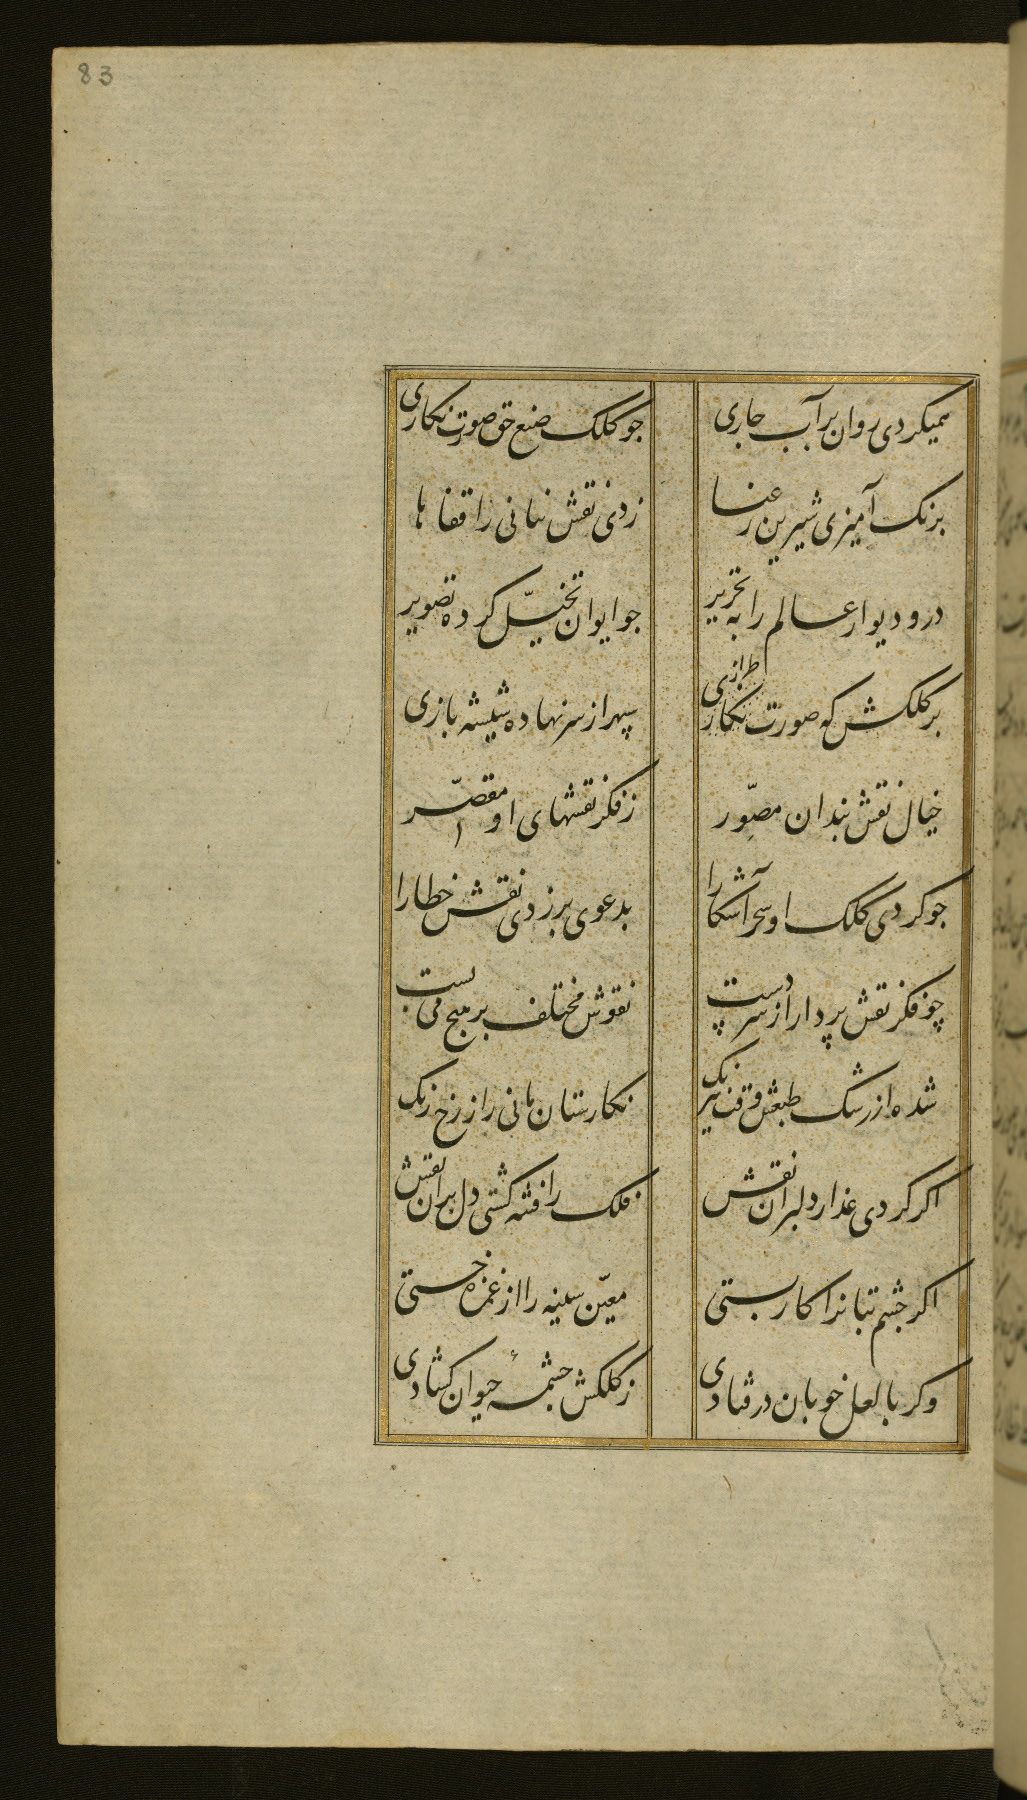 83
همیکردی روان بر آب جاری
جو کلک صنع حق صورت نکاری
برنک آمیزی شیرین رعنا
زدی نقش نبانی را قفا ها
در و دیوار عالم را به تحریر
جو ایوان تخیّل کرده تصویر
بر کلکش که صورت نکار طرازی
سپر از سر نهاده شیشه بازی
خیال نقش بندان مصوّر
ز فکر نقشهای او مقصّر
جو کردی کلک او سحر آشکارا
بدعوی بر زدی نقش خطا را
چو فکر نقش پرداز از سر دست
نقوش مختلف بر هیچ می بست
شده از رشک طبعش فن نیرنک
نکارستان مانی را ز رخ رنک
اکر کردی عذار دلبران نقش
فلک را فتنه کشتی دل بر آن نقش
اکر جشم بتانرا کار بستی
معیّن سینه را از غمزه خستی
وکر با لعل خوبان در فتادی
ز کلکش جشمهٔ حیوان کشادی